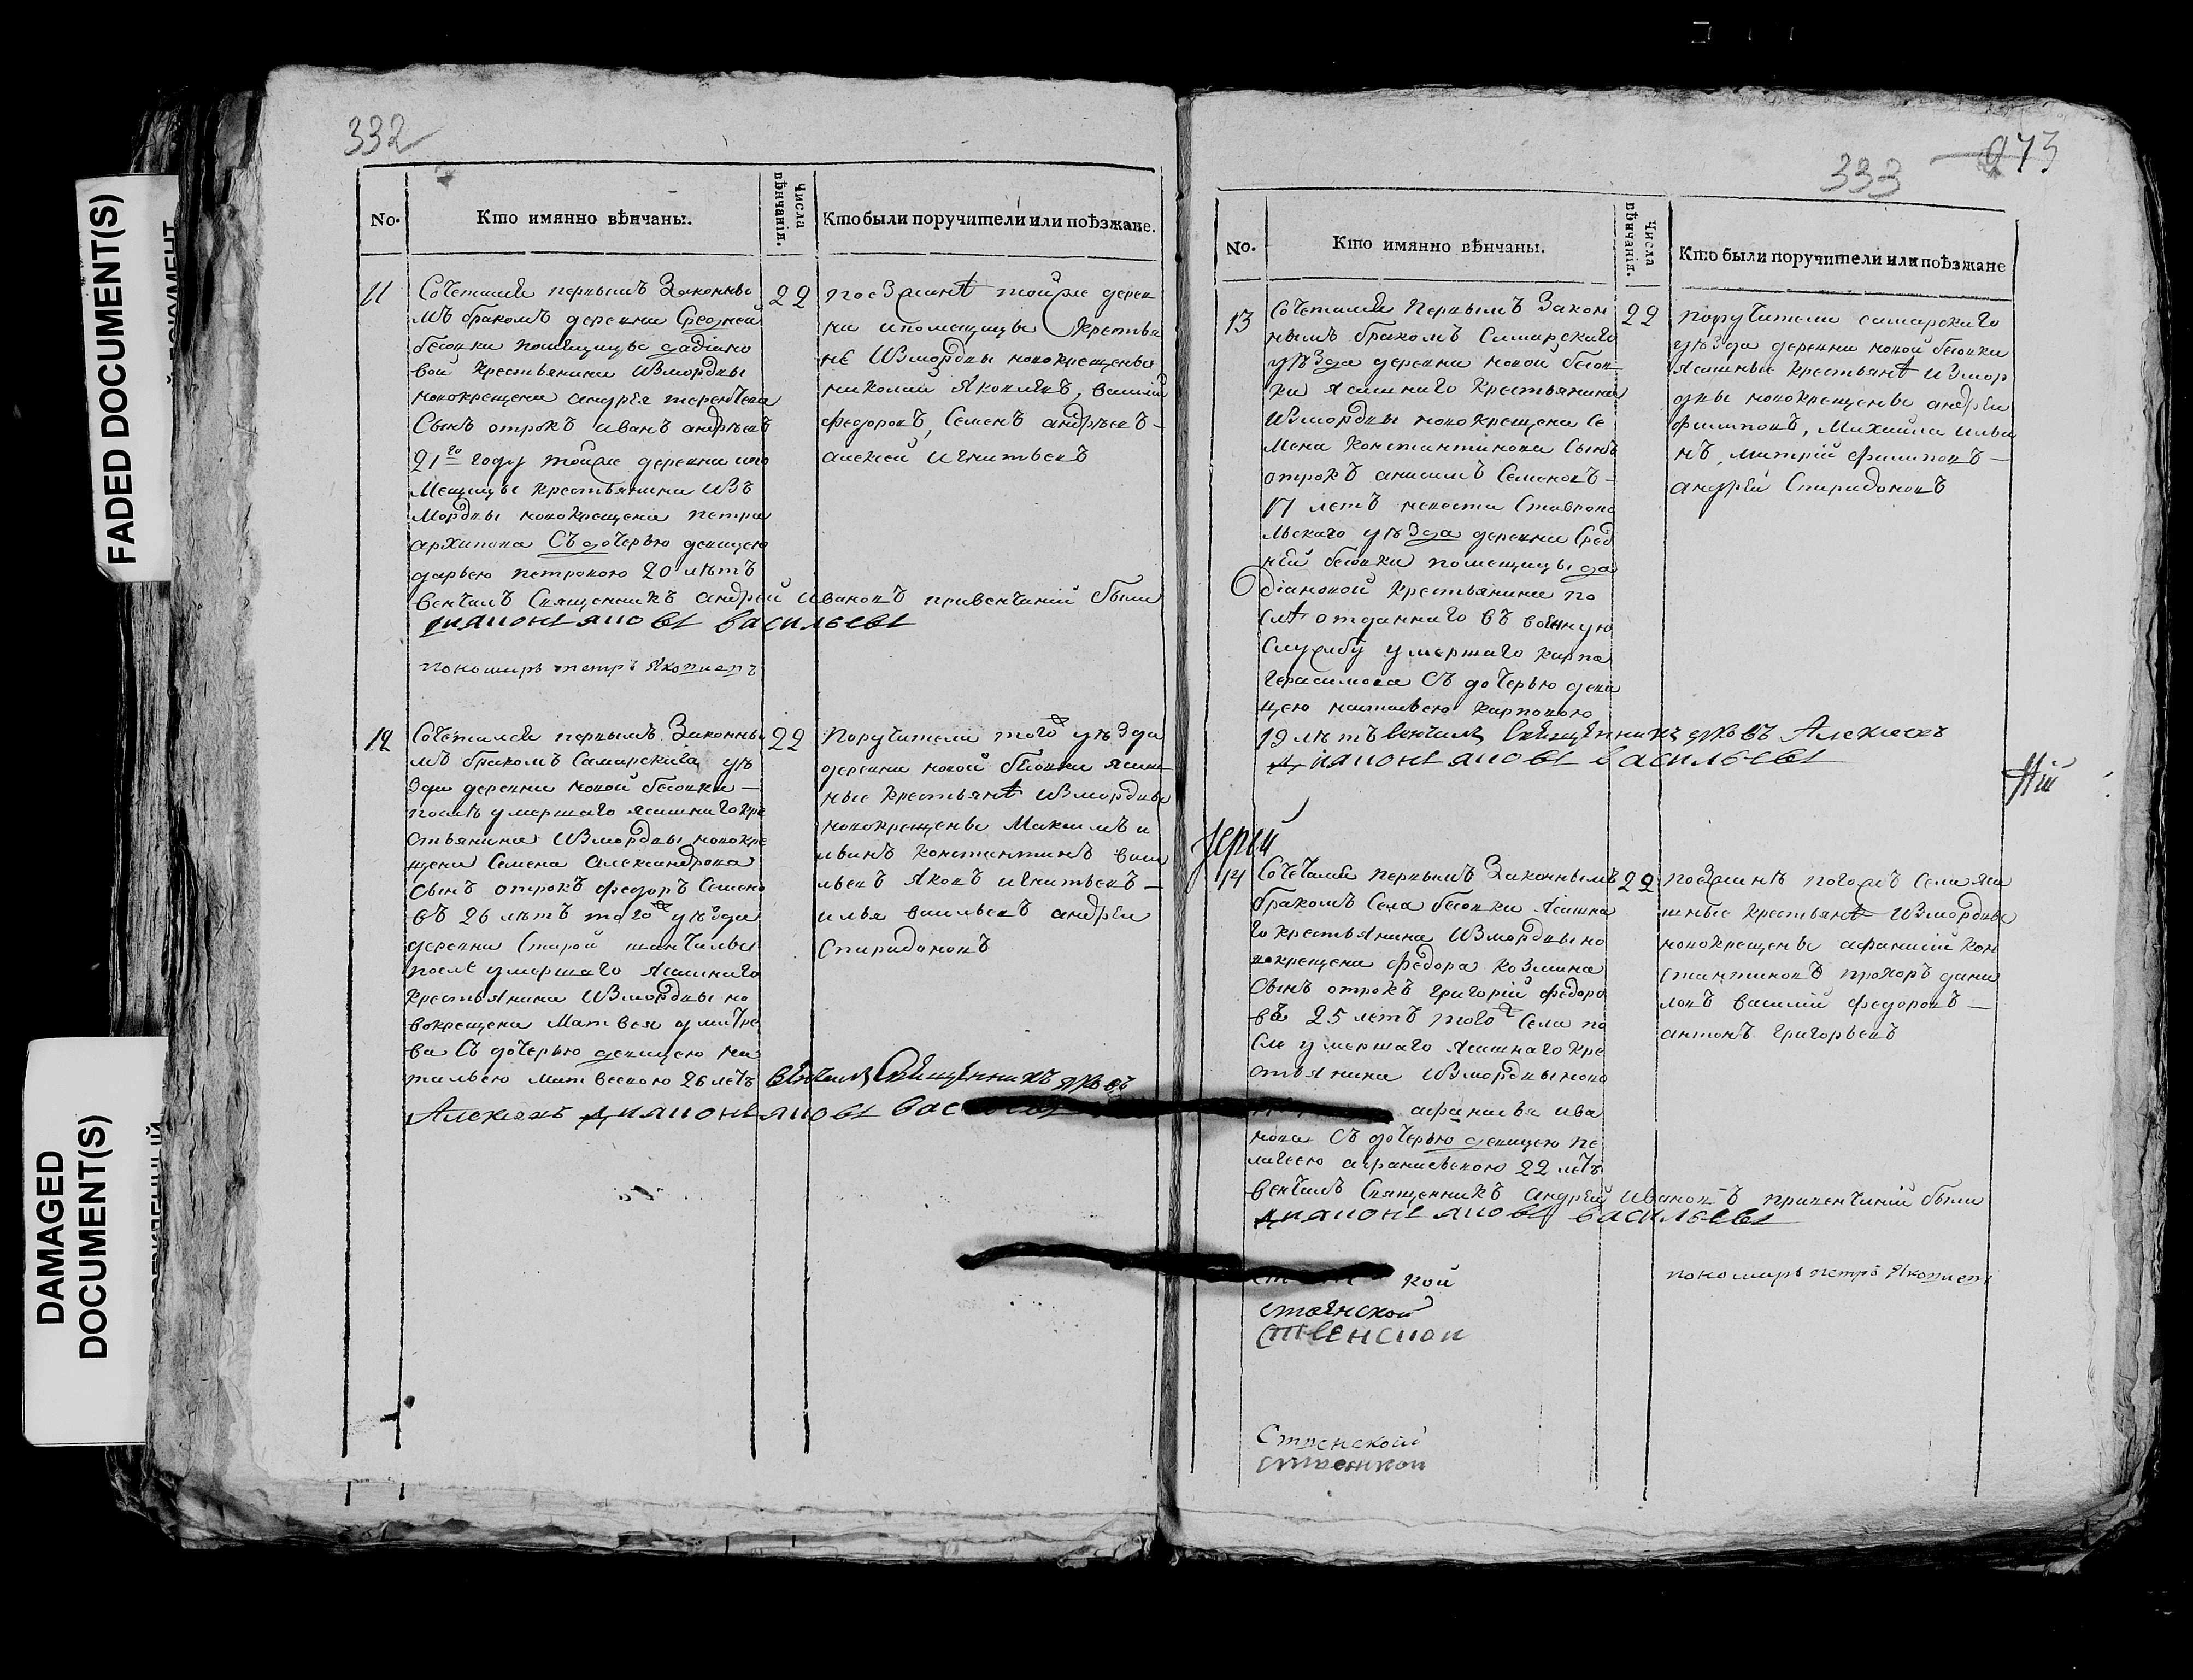 FADED DOCUMENT(S)
DAMAGED
DOCUMENT(S)
332
No.
Кто имянно вѣнчаны.
Числа
вѣнчанія.
Кто были поручители или поѣзжане.
11
Сочетался первымъ Законны
мъ бракомъ деревни Средней
бесовки помещицы дадіано
вой крестьянина Измордвы
новокрещена андрея терентева
Сынъ отрокъ иванъ андрѣевъ
21го году тойже деревни ипо
Мещицы крестьянина Изъ
Мордвы новокрещена петра
архипова Съ дочерью девицею
дарьею петровою 20 лѣтъ
венчалъ Священникъ андрей ивановъ привенчаній были
диаконъ яковъ васильевъ
пономарь петръ Яковлевъ
22
поезжанѣ тойже дерев
ни ипомещицы Крестья
не Измордвы новокрещены
николай Яковлевъ, василій
федоровъ, Семенъ андрѣевъ
алексей игнатьевъ
12
Сочетался первымъ Законны
мъ бракомъ Самарскаго уѣ
зда деревни новой бесовки
послѣ умершаго ясашнаго кре
стьянина Измордвы новокре
щена Семена Александрова
Сынъ отрокъ федоръ Семено
въ 26 лѣтъ тогоже уѣзда
деревни Старой
после умершаго Ясашнаго
крестьянина Измордвы но
вокрещена Матвея дмитре
ва Съ дочерью девицею на
тальею матвеевою 26 летъ венчалъ Священникъ яковъ
Алексеевъ диаконъ яковъ вас
22
Поручители тогоже уѣзда
деревни новой бесовки ясаш
ные крестьянѣ Измордвы
новокрещены Максимъ и
львинъ константинъ васи
льевъ Яковъ игнатьевъ
илья васильевъ андрей
Спиридоновъ
973
333
No.
Кто имянно вѣнчаны.
Числа
вѣнчанія.
Кто были поручители или поѣзжане
13
Сочетался Первымъ Закон
нымъ бракомъ Самарскаго
уѣзда деревни новой бесов
ки ясашнаго крестьянина
Измордвы новокрещена Се
мена константинова Сынъ
отрокъ анисимъ Семеновъ
17 летъ невеста Ставропо
льскаго уѣзда деревни Сред
ней бесовки помещицы да
діановой крестьянина по
слѣ отданнаго въ военную
Службу умершаго карпа
герасимова Съ дочерью деви
цею натальею карповою
19 лѣтъ венчалъ Священникъ яковъ Алексеевъ
диаконъ яковъ васильевъ
22
поручители самарскаго
уѣзда деревни новой бесовки
Ясашные крестьянѣ Измор
двы новокрещены андрей
филиповъ, Михайла ильи
нъ, митрій филиповъ
андрей Спиридоновъ
Іерей
14
Сочетался первымъ Законнымъ
бракомъ Села бесовки Ясашна
го крестьянина Измордвы но
вокрещена федора козмина
Сынъ отрокъ григорій федоро
въ 25 летъ тогоже Села по
сле умершаго Ясашнаго кре
стьянина Измордвы ново
афанасья ива
нова Съ дочерью девицею пе
лагеею афанасьевою 22 летъ
венчалъ Священникъ андрей ивановъ привенчаній были
диаконъ яковъ васильевъ
22
поезжанѣ тогожъ Села яса
шные крестьянѣ Измордвы
новокрещены афанасій кон
стантиновъ прохоръ дани
ловъ василій федоровъ
антонъ григорьевъ
пономарь петръ Яковлевъ
кой